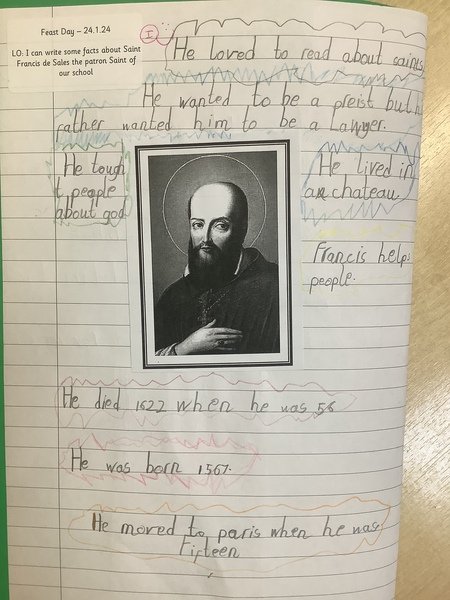 Feast Day – 24.1.24
LO: I can write some facts about Saint
Francis de Sales the patron Saint of
our school
I
He loved to read about saints
He wanted to be a preist but h
rather wanted him to be a Lawyer.
He tough
t people
about god
He lived in
a chateau
Francis helps
people.
He died 1622 when he was 56
He was born 1567.
He moved to paris when he was
Fifteen